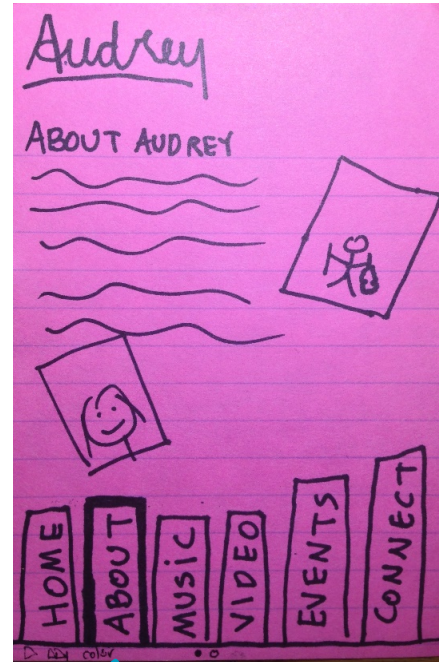 Audrey
ABOUT AUDREY
HOME
ABOUT
MUSIC
VIDEO
EVENTS
CONNECT
color